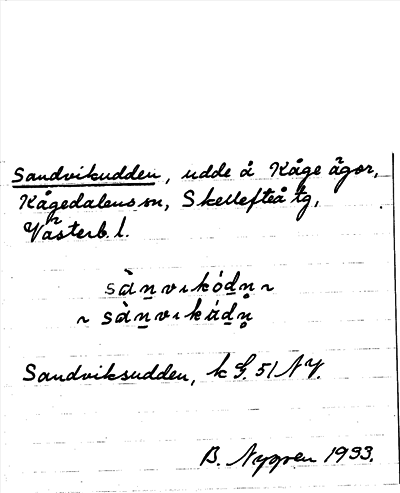 Sandvikudden, udde å Kåge ägor,
Kågedalens sn, Skellefteå tg,
Västerb. l.
sàn̲vıkódn̲ ~
~ sàn̲vıkád̲n̥
Sandviksudden, k G. 51 NY.
B. Nygren 1933.